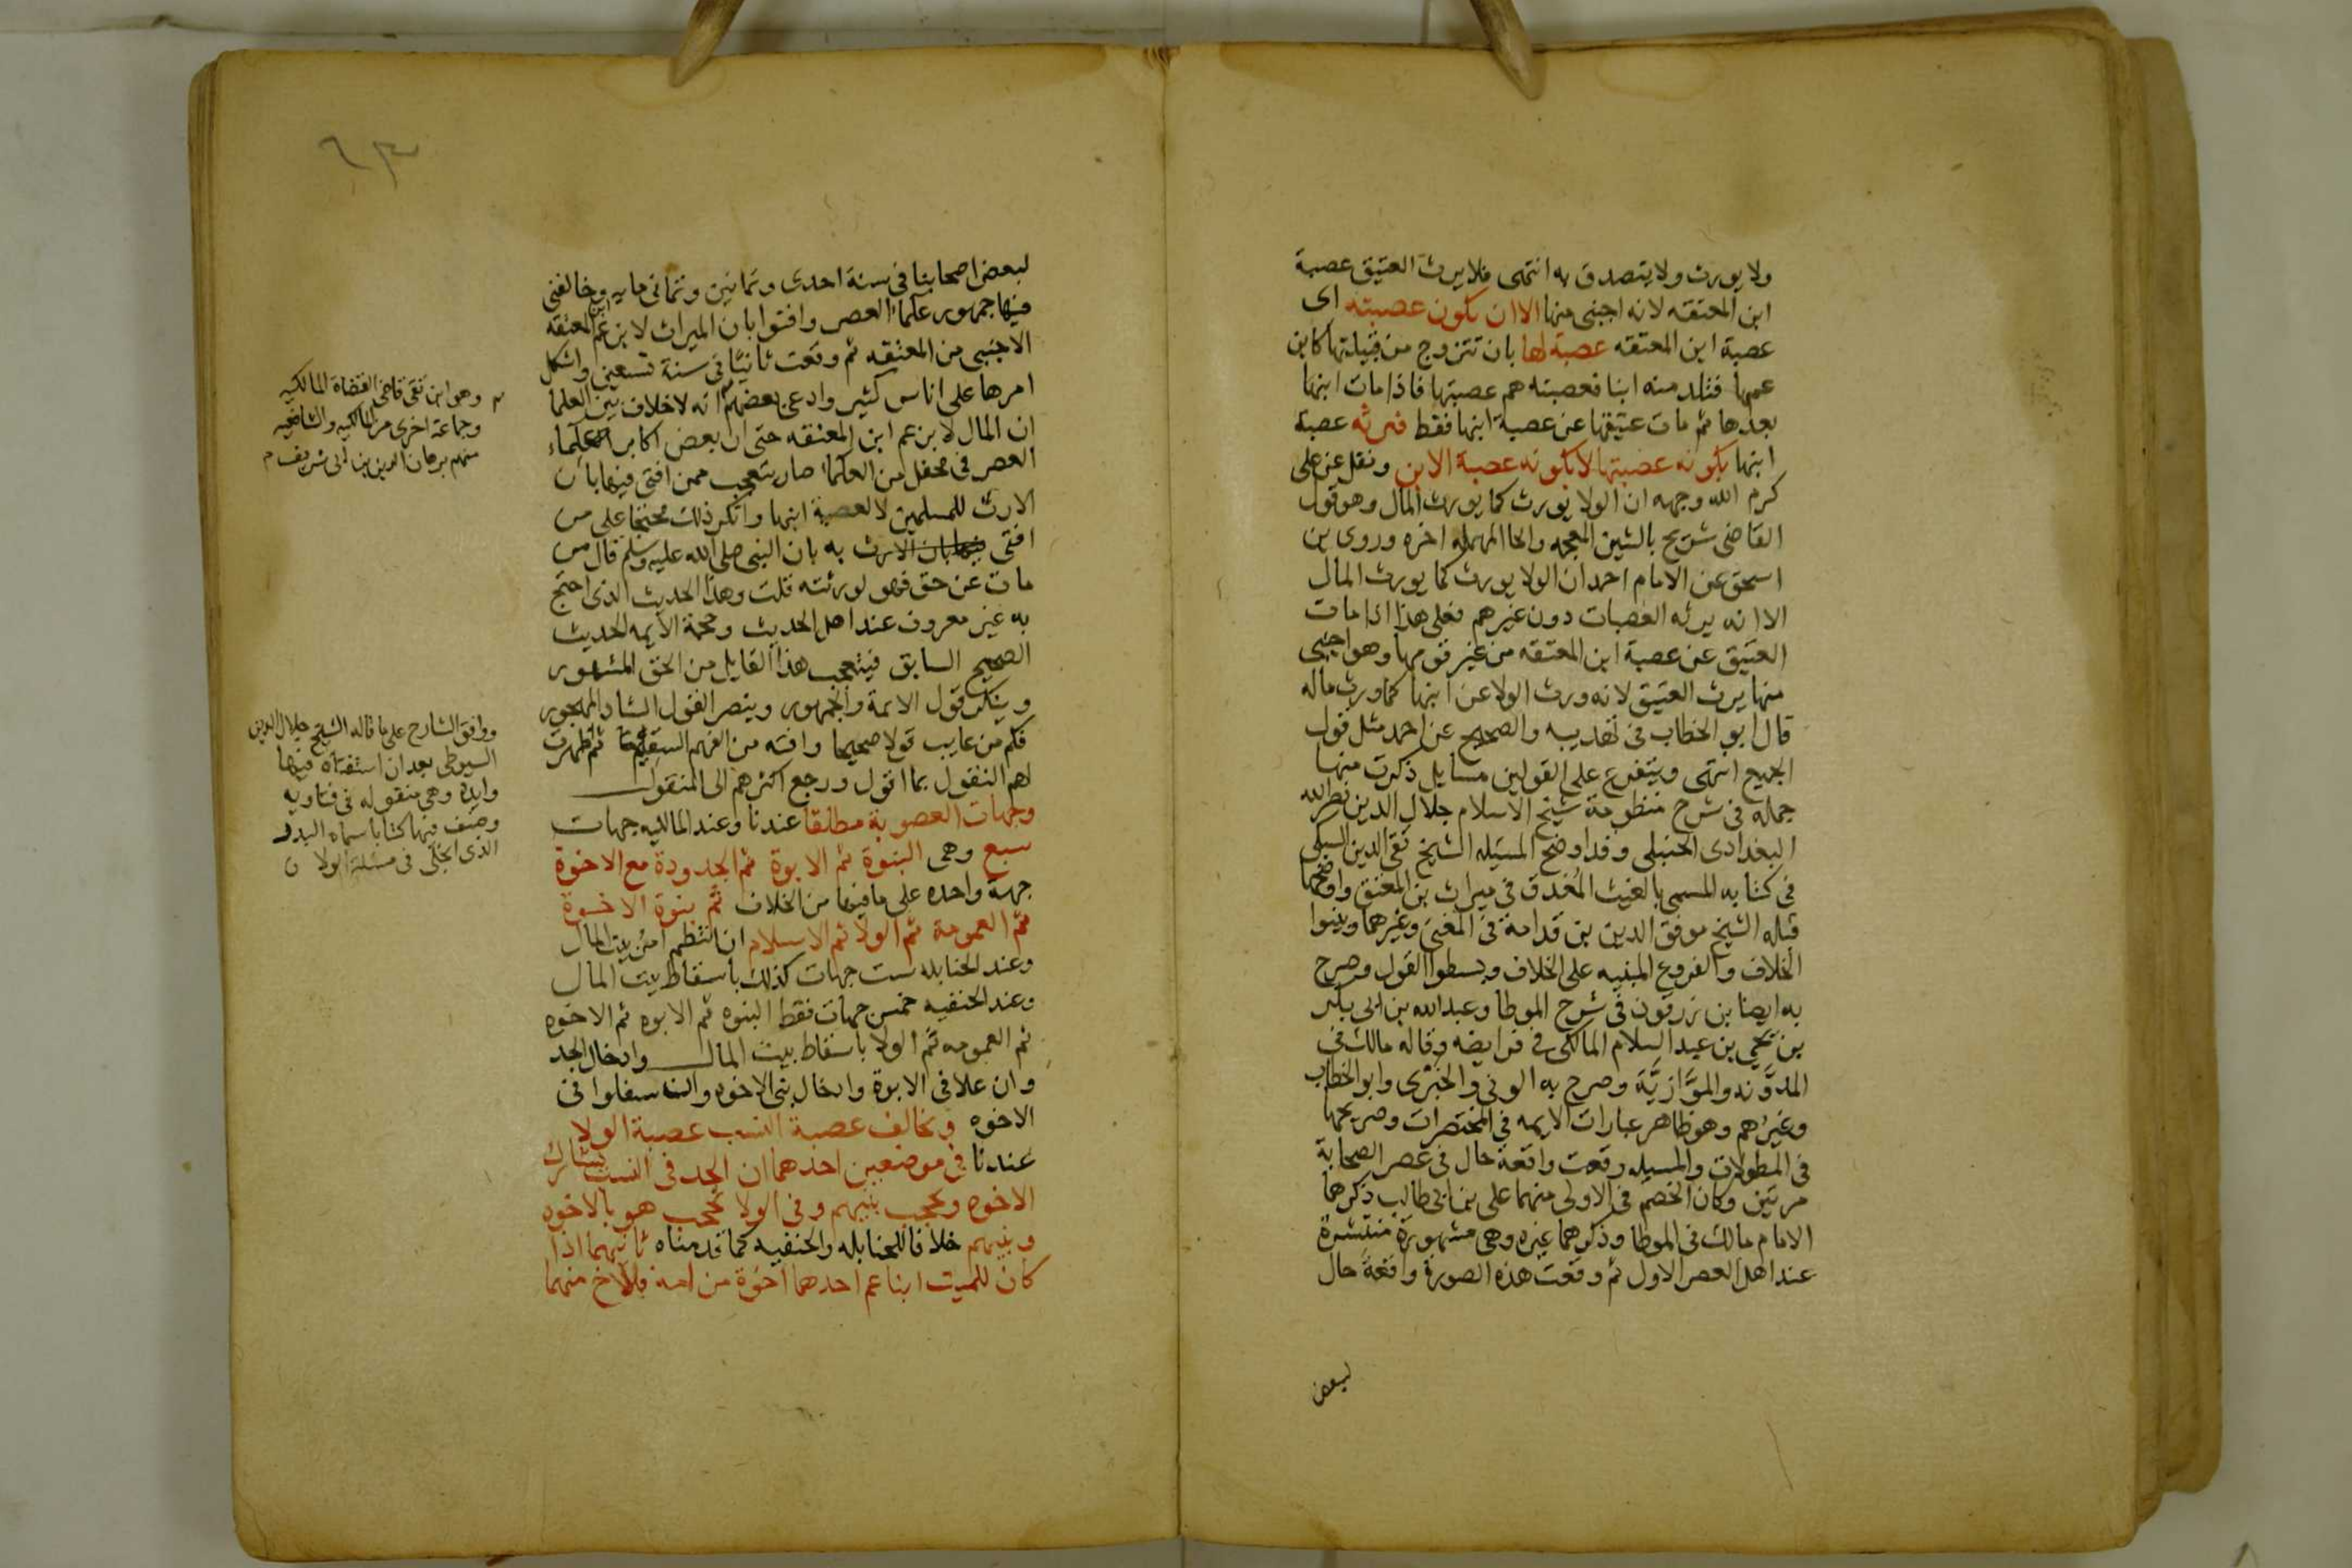 ولا يورث ولا يتصدق به انتهى فلا يرث العتيق عصبة
ابن المعتقه لانه اجنبى منها الا ان يكون عصبته اى
عصبة ابن المعتقه عصبة لها بان تتزوج من قبيلتها كابن
عمها فتلد منه ابنا فعصبته هم عصبتها فاذا مات ابنها
بعدها ثم مات عتيقها عن عصبة ابنها فقط فترثه عصبة
ابنها بكونه عصبتها لا بكونه عصبة الابن ونقل عن على
كرم الله وجهه ان الولا يورث كما يورث المال وهو قول
القاضى شريح بالشين المعجمه والحا المهمله اخره وروى بن
اسحق عن الامام احمد ان الولا يورث كما يورث المال
الا انه يرثه العصبات دون غيرهم فعلى هذا اذا مات
العتيق عن عصبة ابن المعتقه من غير قومها وهو اجنبى
منها يرث العتيق لانه ورث الولا عن ابنها كما ورث ماله
قال ابو الخطاب فى تهذيبه والصحيح عن احمد مثل قول
الجميع انتهى ويتفرع على القولين مسايل ذكرت منها
جملة فى شرح منظومة شيخ الاسلام جلال الدين نصر الله
البغدادى الحنبلى وقد اوضح المسئله الشيخ تقى الدين السبكى
فى كتابه المسمى بالغيث المغدق فى ميراث بن المعتق واوضحها
قبله الشيخ موفق الدين بن قدامة فى المغنى وغيرهما وبينوا
الخلاف والفروع المبنيه على الخلاف وبسطوا القول وصرح
به ايضا بن زرقون فى شرح الموطا وعبد الله بن ابى بكر
بن يحيى بن عبد السلام المالكى فى فرايضه وقاله مالك فى
المدونه والموازية وصرح به الونى والخبرى وابو الخطاب
وغيرهم وهو ظاهر عبارات الايمه فى المختصرات وصريحها
فى المطولات والمسيله وقعت واقعة حال فى عصر الصحابة
مرتين وكان الخصم فى الاولى منهما على بن ابى طالب ذكرهما
الامام مالك فى الموطا وذكرهما غيره وهى مشهورة منتشرة
عند اهل العصر الاول ثم وقعت هذه الصورة واقعة حال
لبعض
٦٣
لبعض اصحابنا فى سنة احدى وثمانين وثمانى مايه وخالفنى
فيها جمهور علماء العصر وافتوا بان الميراث لابن عم ابن المعتقه
الاجنبى من المعتقه ثم وقعت ثانيا فى سنة تسعين واشكل
امرها على اناس كثير وادعى بعضهم انه لا خلاف بين العلما
ان المال لابن عم ابن المعتقه حتى ان بعض اكابر علماء
العصر فى محفل من العلماء صار يتعجب ممن افتى فيها بان
الارث للمسلمين لا لعصبة ابنها وانكر ذلك محتجا على من
افتى به بان النبى صلى الله عليه وسلم قال من
مات عن حق فهو لورثته قلت وهذا الحديث الذى احتج
به غير معروف عند اهل الحديث وحجة الايمه الحديث
الصحيح السابق فيتعجب هذا القايل من الحق المشهور
وينكر قول الائمة والجمهور وينصر القول الشاذ المهجور
فكم من عايب قولا صحيحا وافته من الفهم السقيم ثم ظهرت
لهم النقول بما اقول ورجع اكثرهم الى المنقول
وجهات العصوبة مطلقا عندنا وعند المالكيه جهات
سبع وهى البنوة ثم الابوة ثم الجدودة مع الاخوة
جهة واحده على ما فيها من الخلاف ثم بنوة الاخوة
ثم العمومة ثم الولا ثم الاسلام ان انتظم امر بيت المال
وعند الحنابله ست جهات كذلك باسقاط بيت المال
وعند الحنفيه خمس جهات فقط البنوه ثم الابوه ثم الاخوه
ثم العمومه ثم الولا باسقاط بيت المال وادخال الجد
وان علا فى الابوة وادخال بنى الاخوه وان سفلوا فى
الاخوه وتخالف عصبة النسب عصبة الولا
عندنا فى موضعين احدهما ان الجد فى النسب يشارك
الاخوه ويحجب بنيهم وفى الولا يحجب هو بالاخوه
وبنيهم خلافا للحنابله والحنفيه كما قدمناه ثانيهما اذا
كان للميت ابنا عم احدهما اخوة من امه فللاخ منهما
وهو ابن تقى قاضى القضاة المالكيه
وجماعة اخرى من المالكيه والشافعيه
منهم برهان الدين بن ابى شريف م
ووافق الشارح على ما قاله الشيخ جلال الدين
السيوطى بعد ان استفتاه فيها
وايده وهى منقوله فى فتاويه
وصنف فيها كتابا سماه البدر
الذى انجلى فى مسئلة الولا